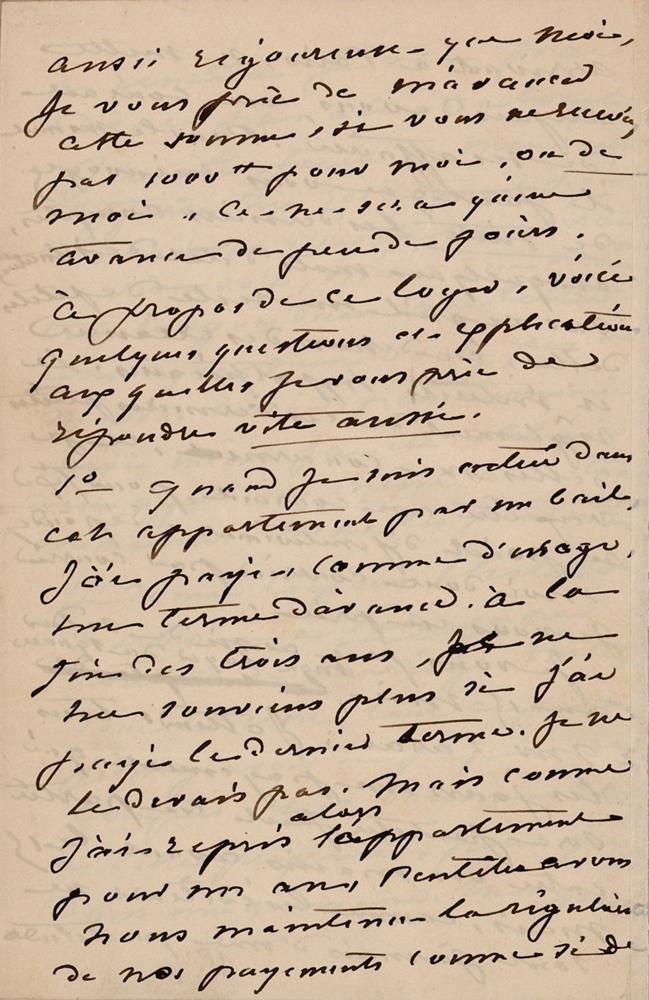 aussi rigoureuse que moi,
Je vous prie de m'avancer
cette somme, si vous ne recevez
pas 1000 ff pour moi, ou de
moi. Ce ne sera qu'une
avance de peu de jours.
à propos de ce loyer, voici
quelques questions et explications
auxquelles je vous prie de
répondre vite aussi.
1º quand je suis entrée dans
cet appartement par un bail,
J'ai payé, comme d'usage,
un terme d'avance. à la
fin des trois ans, je ne
me souviens plus si j'ai
payé le dernier terme. Je ne
le devais pas. Mais comme
J'ai repris alors l'appartement
pour un an, peut-être avons
nous maintenu la régularité
de nos payements comme si de